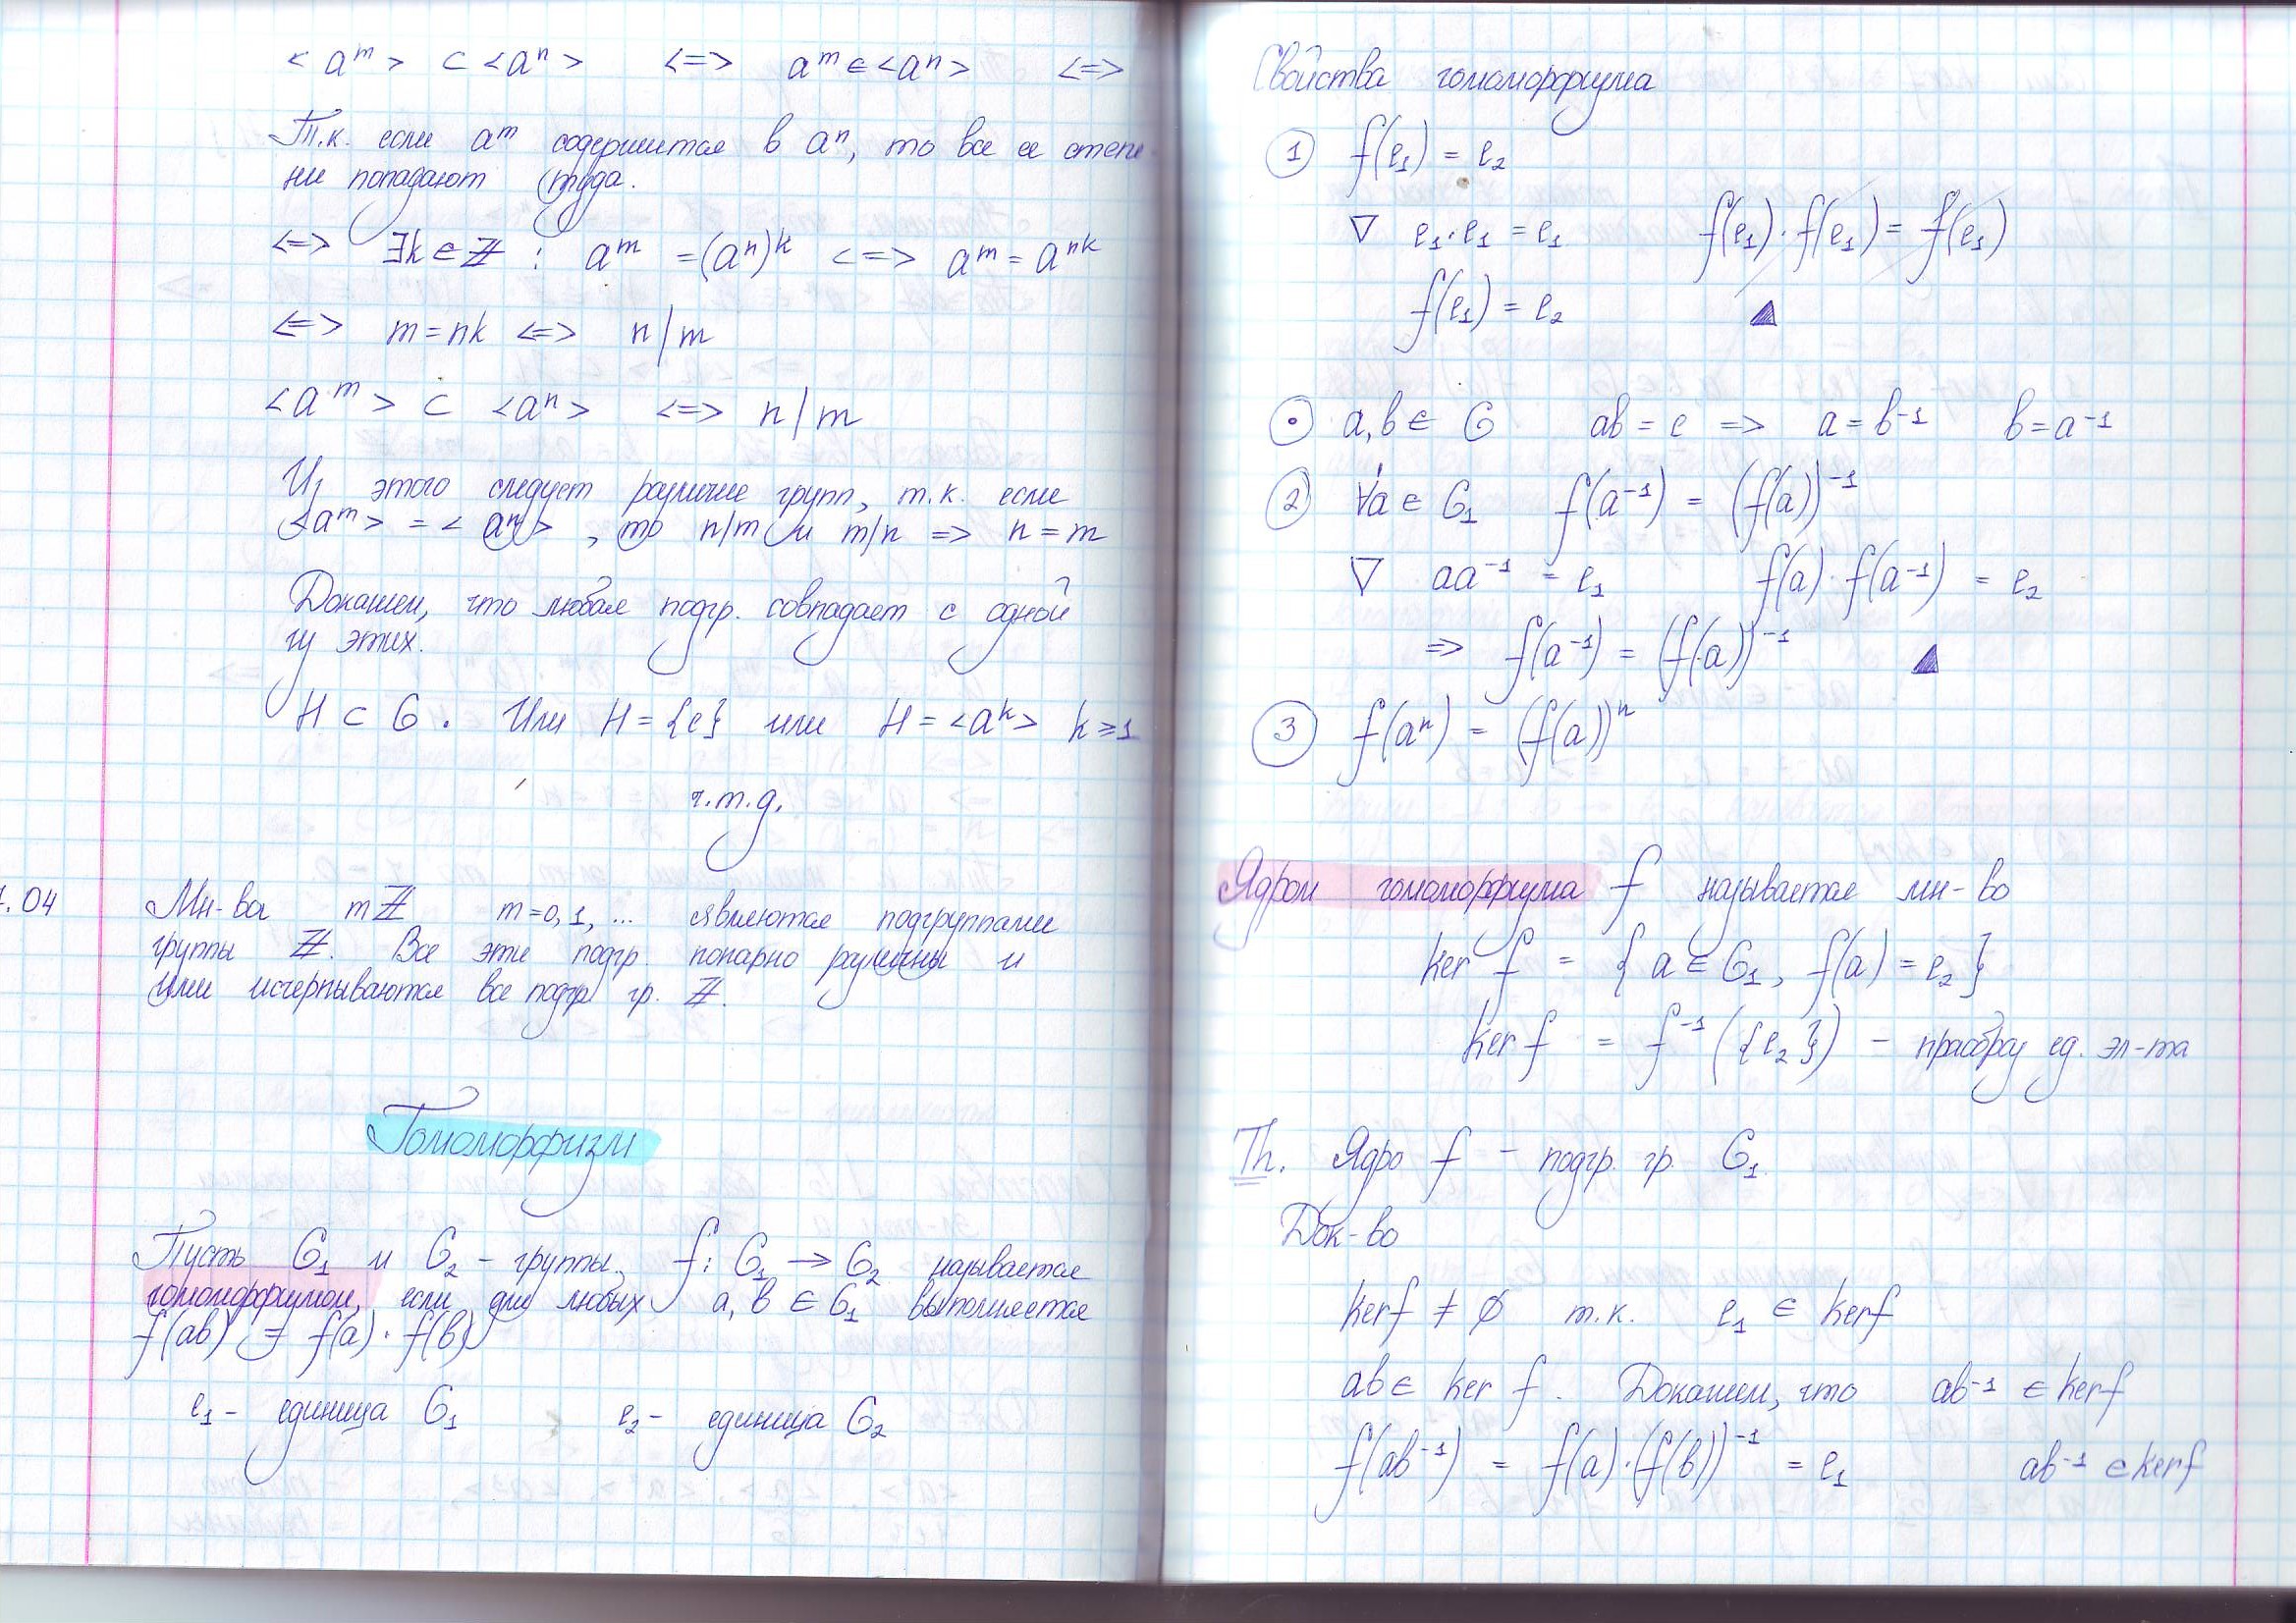 <a^m> ⊂ <a^n> <=> a^m ∈ <a^n> <=>
Т.к. если a^m содержится в a^n, то все ее степе
ни попадают туда.
<=> ∃k ∈ ℤ : a^m = (a^n)^k <=> a^m = a^nk
<=> m = nk <=> n/m
<a^m> ⊂ <a^n> <=> n/m
Из этого следует различие групп, т.к. если
<a^m> = <a^n>, то n/m и m/n => n = m
Докажем, что любая подгр. совпадает с одной
из этих.
H ⊂ G. Или H = {e} или H = <a^k> k ≥ 1
ч.т.д.
.04 Мн-ва mℤ m=0,1,... являются подгруппами
группы ℤ. Все эти подгр. попарно различны и
ими исчерпываются все подгр гр. ℤ.
Гомоморфизм
Пусть G₁ и G₂ - группы. f: G₁ → G₂ называется
гомоморфизмом, если для любых a, b ∈ G₁ выполняется
f(ab) = f(a)·f(b)
e₁ - единица G₁ e₂ - единица G₂
Свойства гомоморфизма
① f(e₁) = e₂
▽ e₁·e₁ = e₁ f(e₁)·f(e₁) = f(e₁)
f(e₁) = e₂ ▲
⊙ a, b ∈ G ab = e => a = b⁻¹ b = a⁻¹
② ∀a ∈ G₁ f(a⁻¹) = (f(a))⁻¹
▽ aa⁻¹ = e₁ f(a)·f(a⁻¹) = e₂
=> f(a⁻¹) = (f(a))⁻¹ ▲
③ f(aⁿ) = (f(a))ⁿ
Ядром гомоморфизма f называется мн-во
ker f = {a ∈ G₁, f(a) = e₂}
ker f = f⁻¹({e₂}) - прообраз ед. эл-та
Th. Ядро f - подгр. гр. G₁.
Док-во
kerf ≠ ∅ т.к. e₁ ∈ kerf
ab ∈ ker f. Докажем, что ab⁻¹ ∈ kerf
f(ab⁻¹) = f(a)·(f(b))⁻¹ = e₁ ab⁻¹ ∈ kerf